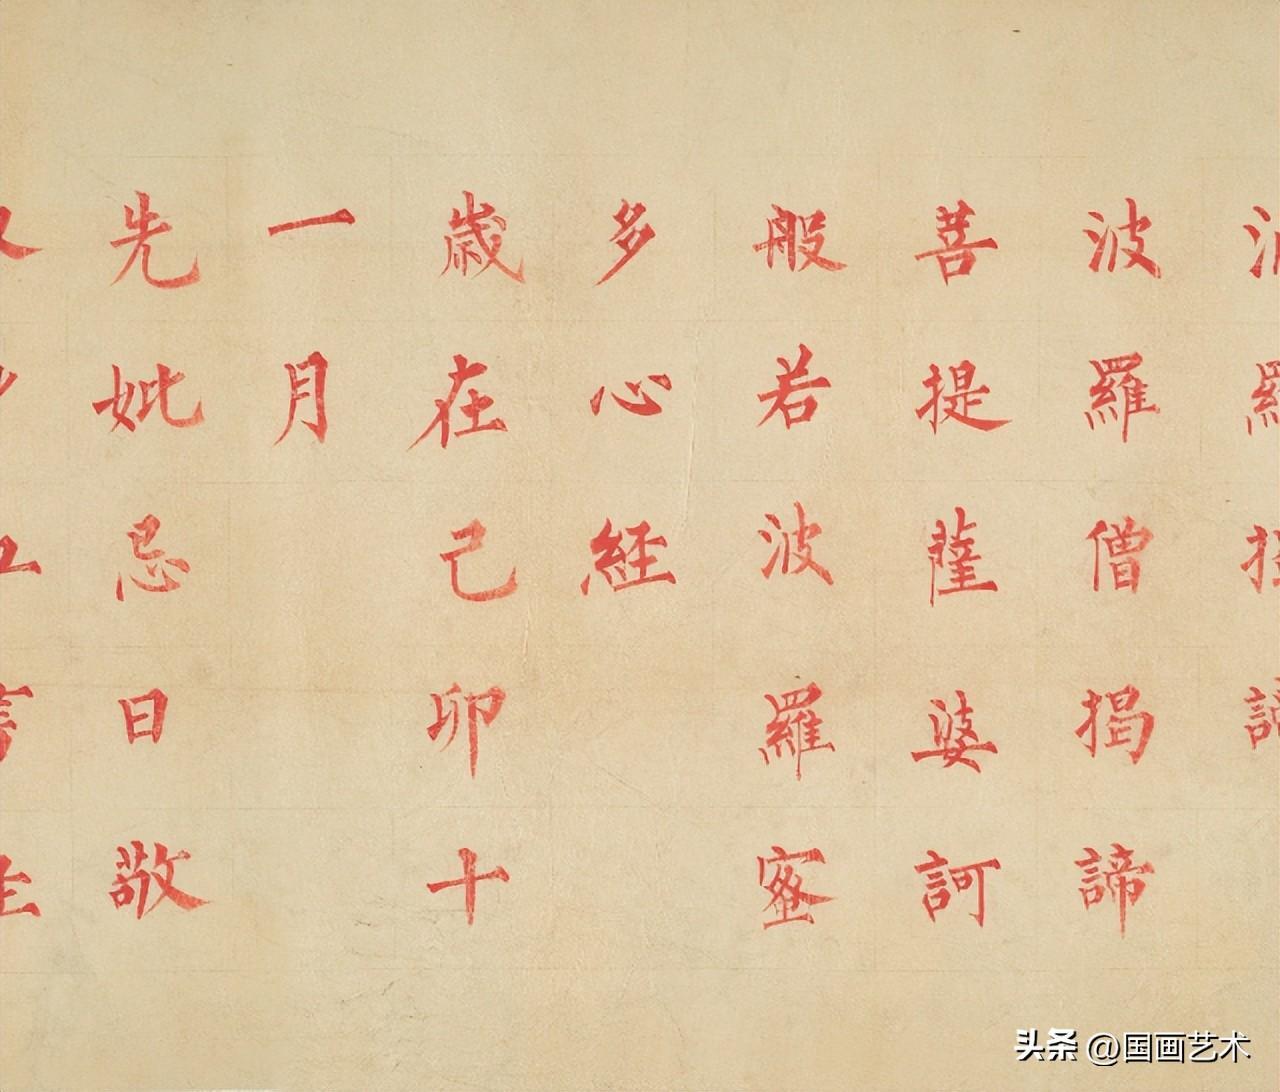 波羅僧揭諦
菩提薩婆訶
般若波羅蜜
多心経
歳在己卯十
一月
先妣忌日敬
头条 @国画艺术